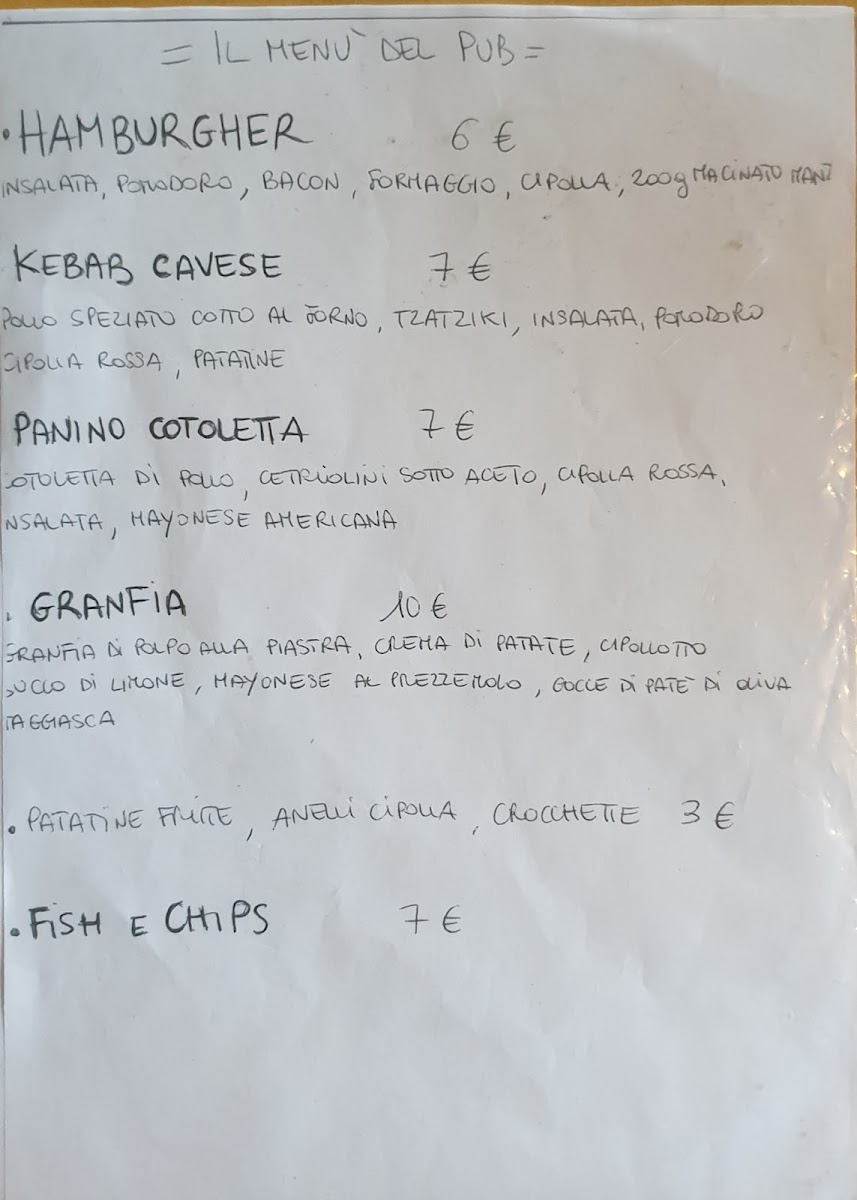 = IL MENÙ DEL PUB =
• HAMBURGHER 6 €
INSALATA, POMODORO, BACON, FORMAGGIO, CIPOLLA, 200g MACINATO MANZ
KEBAB CAVESE 7 €
POLLO SPEZIATO COTTO AL FORNO, TZATZIKI, INSALATA, POMODORO
CIPOLLA ROSSA, PATATINE
PANINO COTOLETTA 7 €
COTOLETTA DI POLLO, CETRIOLINI SOTTO ACETO, CIPOLLA ROSSA,
NSALATA, MAYONESE AMERICANA
. GRANFIA 10 €
GRANFIA DI POLPO ALLA PIASTRA, CREMA DI PATATE, CIPOLLOTTO
SUCCO DI LIMONE, MAYONESE AL PREZZEMOLO, GOCCE DI PATÈ DI OLIVA
TAGGIASCA
• PATATINE FRITTE, ANELLI CIPOLLA, CROCCHETTE 3 €
• FISH E CHIPS 7 €